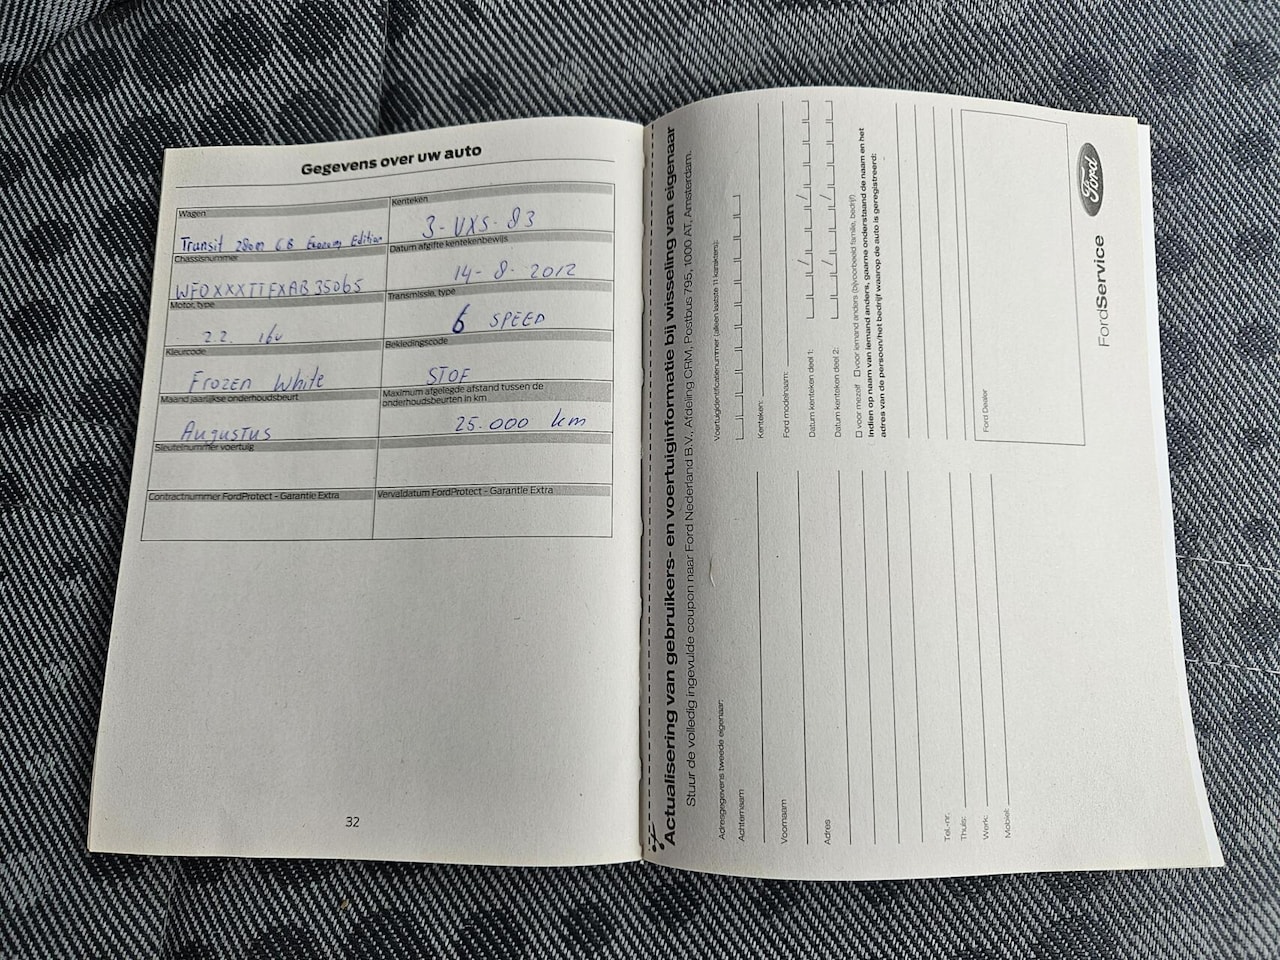 Gegevens over uw auto
Wagen
Transit 280m CB Economy Edition
Kenteken
3-VXS-83
Chassisnummer
WF0XXXTTFXAB35065
Datum afgifte kentekenbewijs
14-8-2012
Motor, type
2.2. 16v
Transmissie, type
6 SPEED
Kleurcode
Frozen White
Bekledingscode
STOF
Maand jaarlijkse onderhoudsbeurt
Augustus
Maximum afgelegde afstand tussen de
onderhoudsbeurten in km
25.000 km
Sleutelnummer voertuig
Contractnummer FordProtect - Garantie Extra
Vervaldatum FordProtect - Garantie Extra
32
Actualisering van gebruikers- en voertuiginformatie bij wisseling van eigenaar
Stuur de volledig ingevulde coupon naar Ford Nederland B.V., Afdeling CRM, Postbus 795, 1000 AT, Amsterdam.
Adresgegevens tweede eigenaar:
Achternaam
Voornaam
Adres
Tel.-nr.
Thuis:
Werk:
Mobiel:
Voertuigidentificatienummer (alleen laatste 11 karakters):
Kenteken:
Ford modelnaam:
Datum kenteken deel 1:
Datum kenteken deel 2:
voor mezelf voor iemand anders (bijvoorbeeld familie, bedrijf)
Indien op naam van iemand anders, gaarne onderstaand de naam en het
adres van de persoon/het bedrijf waarop de auto is geregistreerd:
Ford Dealer
FordService
Ford